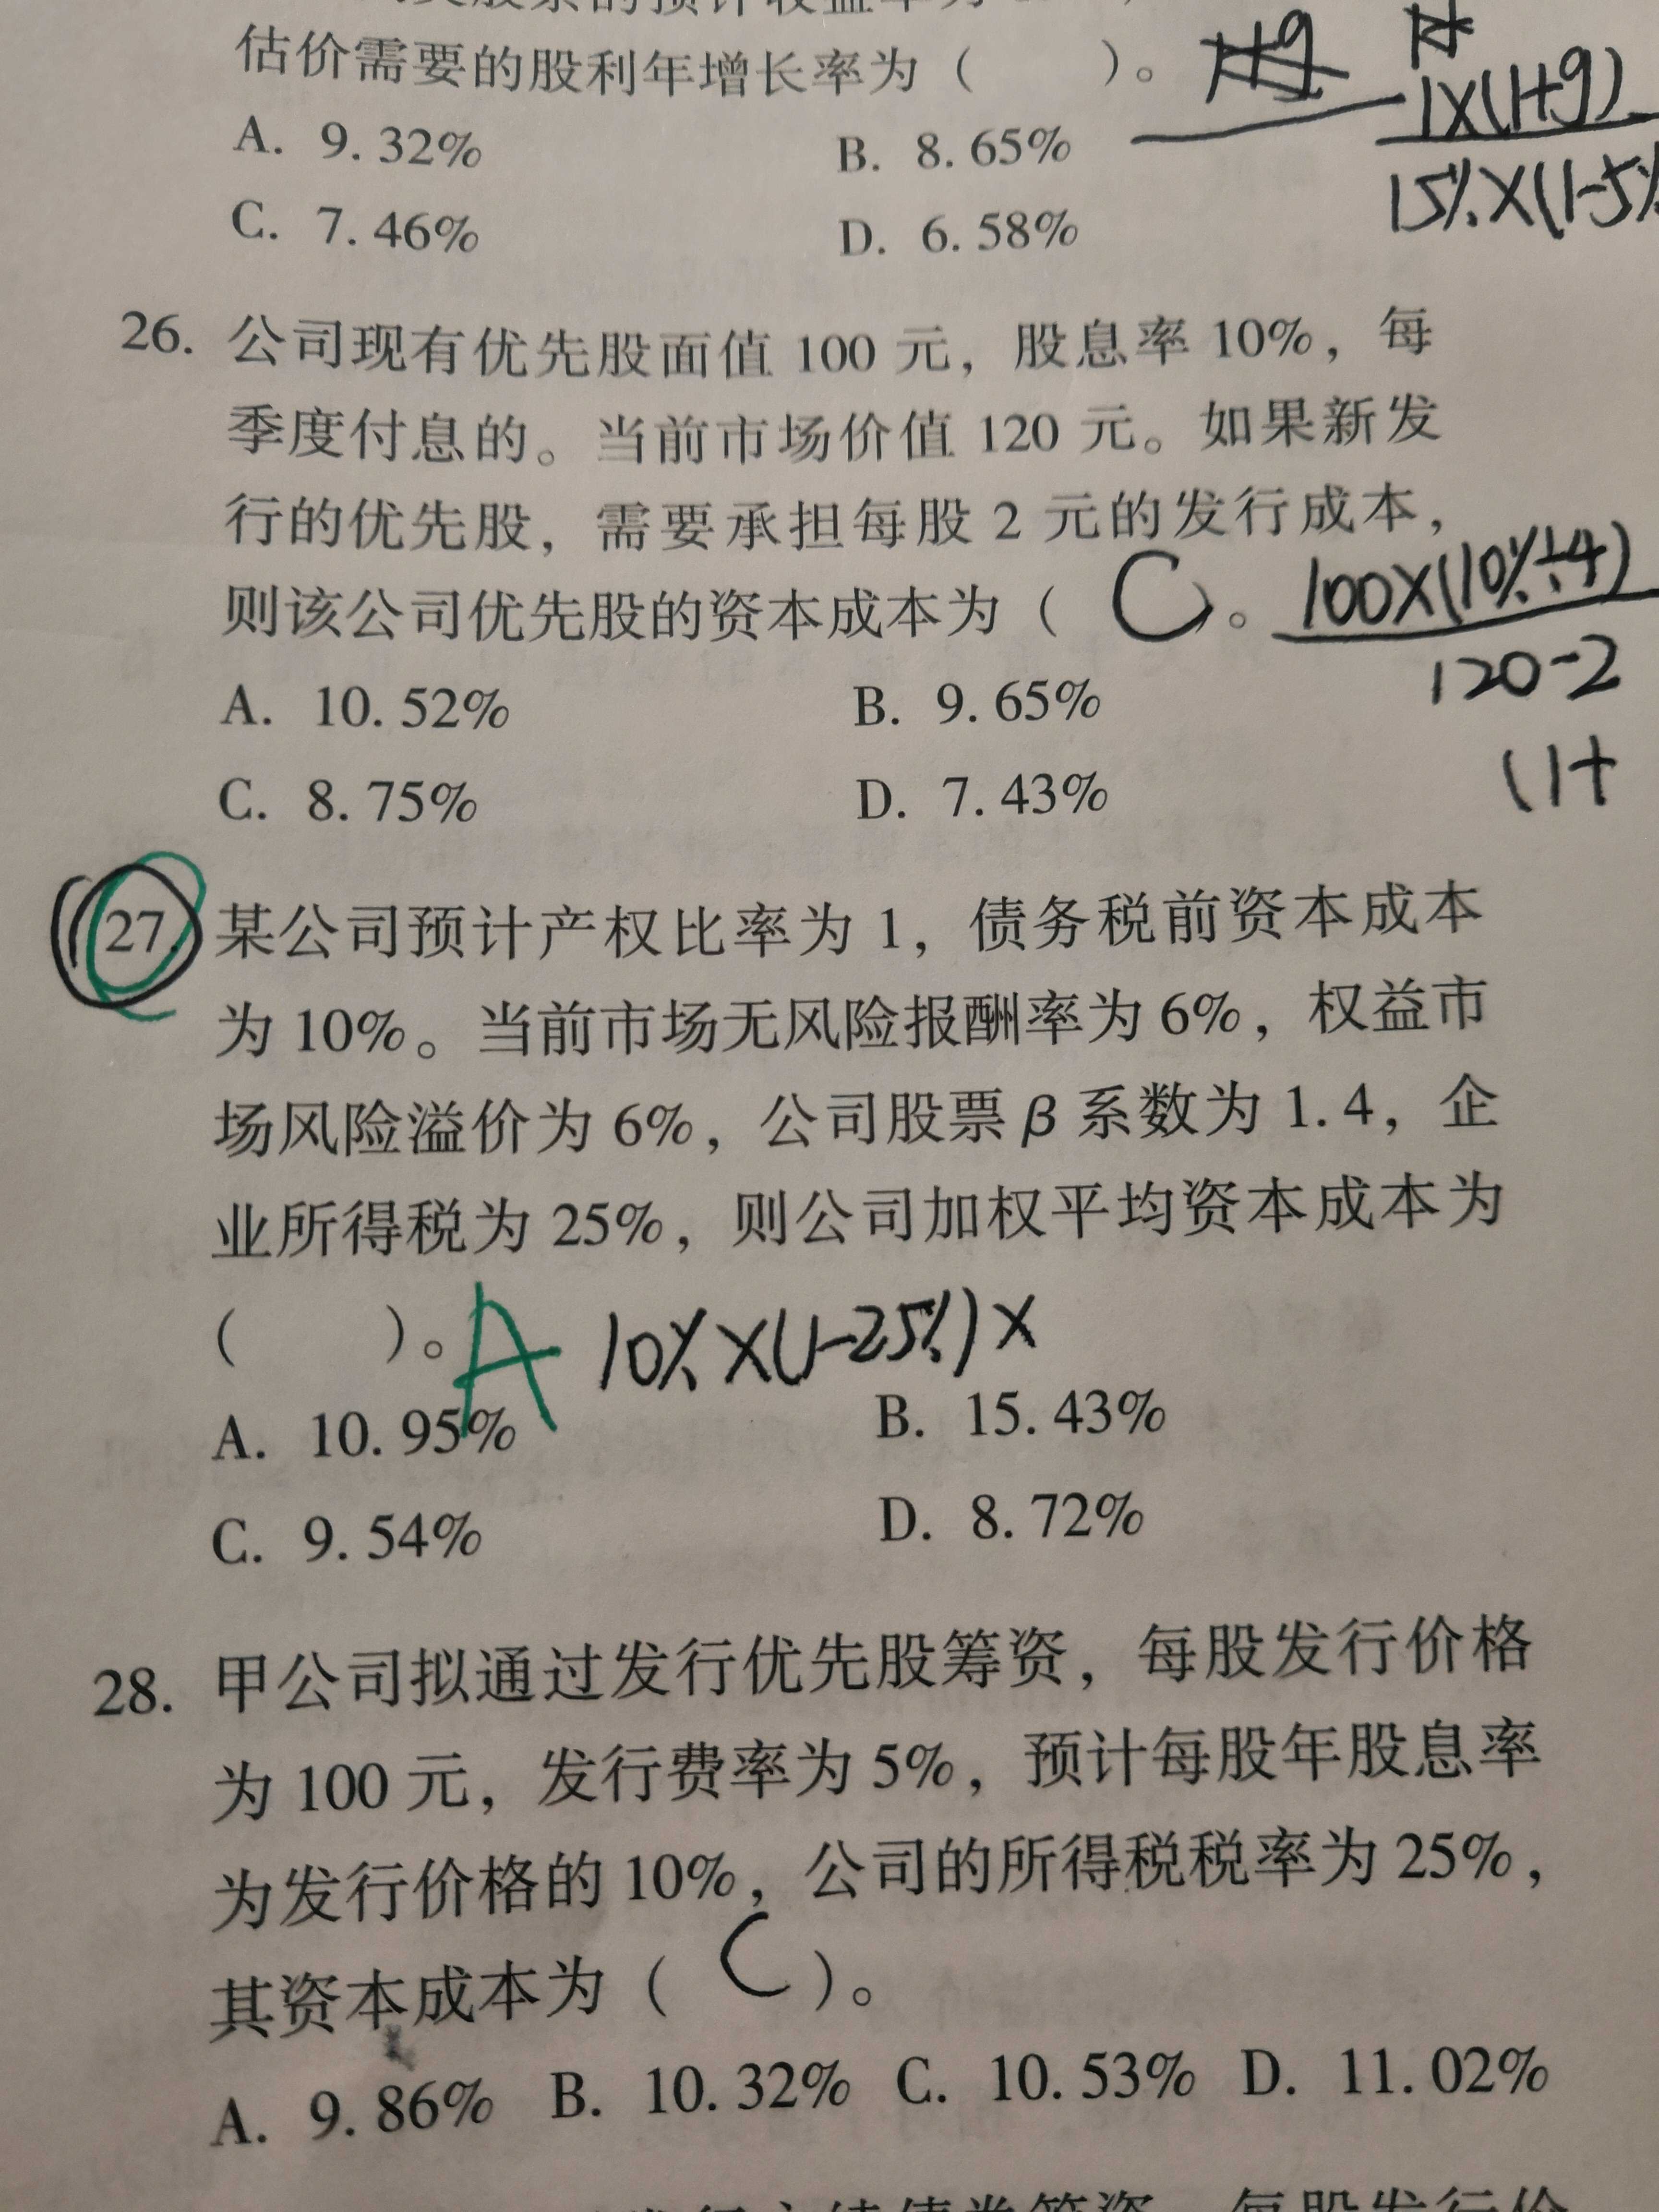 估价需要的股利年增长率为（ ）。
1×(1+g)
15%×(1-5%
A. 9.32% B. 8.65%
C. 7.46% D. 6.58%
26. 公司现有优先股面值 100 元，股息率 10%，每
季度付息的。当前市场价值 120 元。如果新发
行的优先股，需要承担每股 2 元的发行成本，
则该公司优先股的资本成本为（ C ）。 100×(10%÷4)
120-2
(1+
A. 10.52% B. 9.65%
C. 8.75% D. 7.43%
27. 某公司预计产权比率为 1，债务税前资本成本
为 10%。当前市场无风险报酬率为 6%，权益市
场风险溢价为 6%，公司股票 β 系数为 1.4，企
业所得税为 25%，则公司加权平均资本成本为
（ ）。A 10%×(1-25%)×
A. 10.95% B. 15.43%
C. 9.54% D. 8.72%
28. 甲公司拟通过发行优先股筹资，每股发行价格
为 100 元，发行费率为 5%，预计每股年股息率
为发行价格的 10%，公司的所得税税率为 25%，
其资本成本为（ C ）。
A. 9.86% B. 10.32% C. 10.53% D. 11.02%